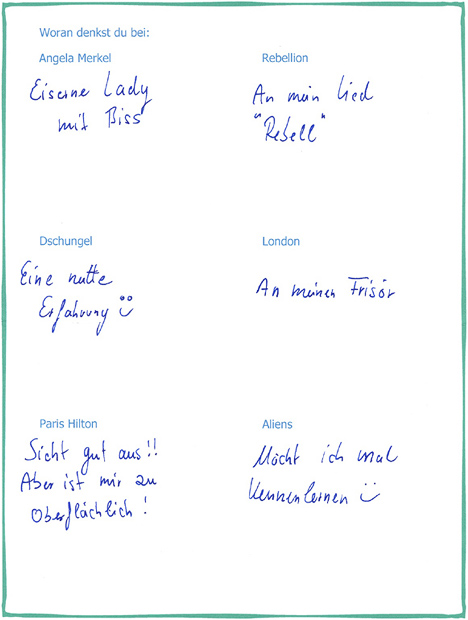 Woran denkst du bei:
Angela Merkel
Eiserne Lady
mit Biss
Rebellion
An mein Lied
"Rebell"
Dschungel
Eine nette
Erfahrung
London
An meinen Frisör
Paris Hilton
Sieht gut aus!!
Aber ist mir zu
Oberflächlich!
Aliens
Möcht ich mal
Kennenlernen